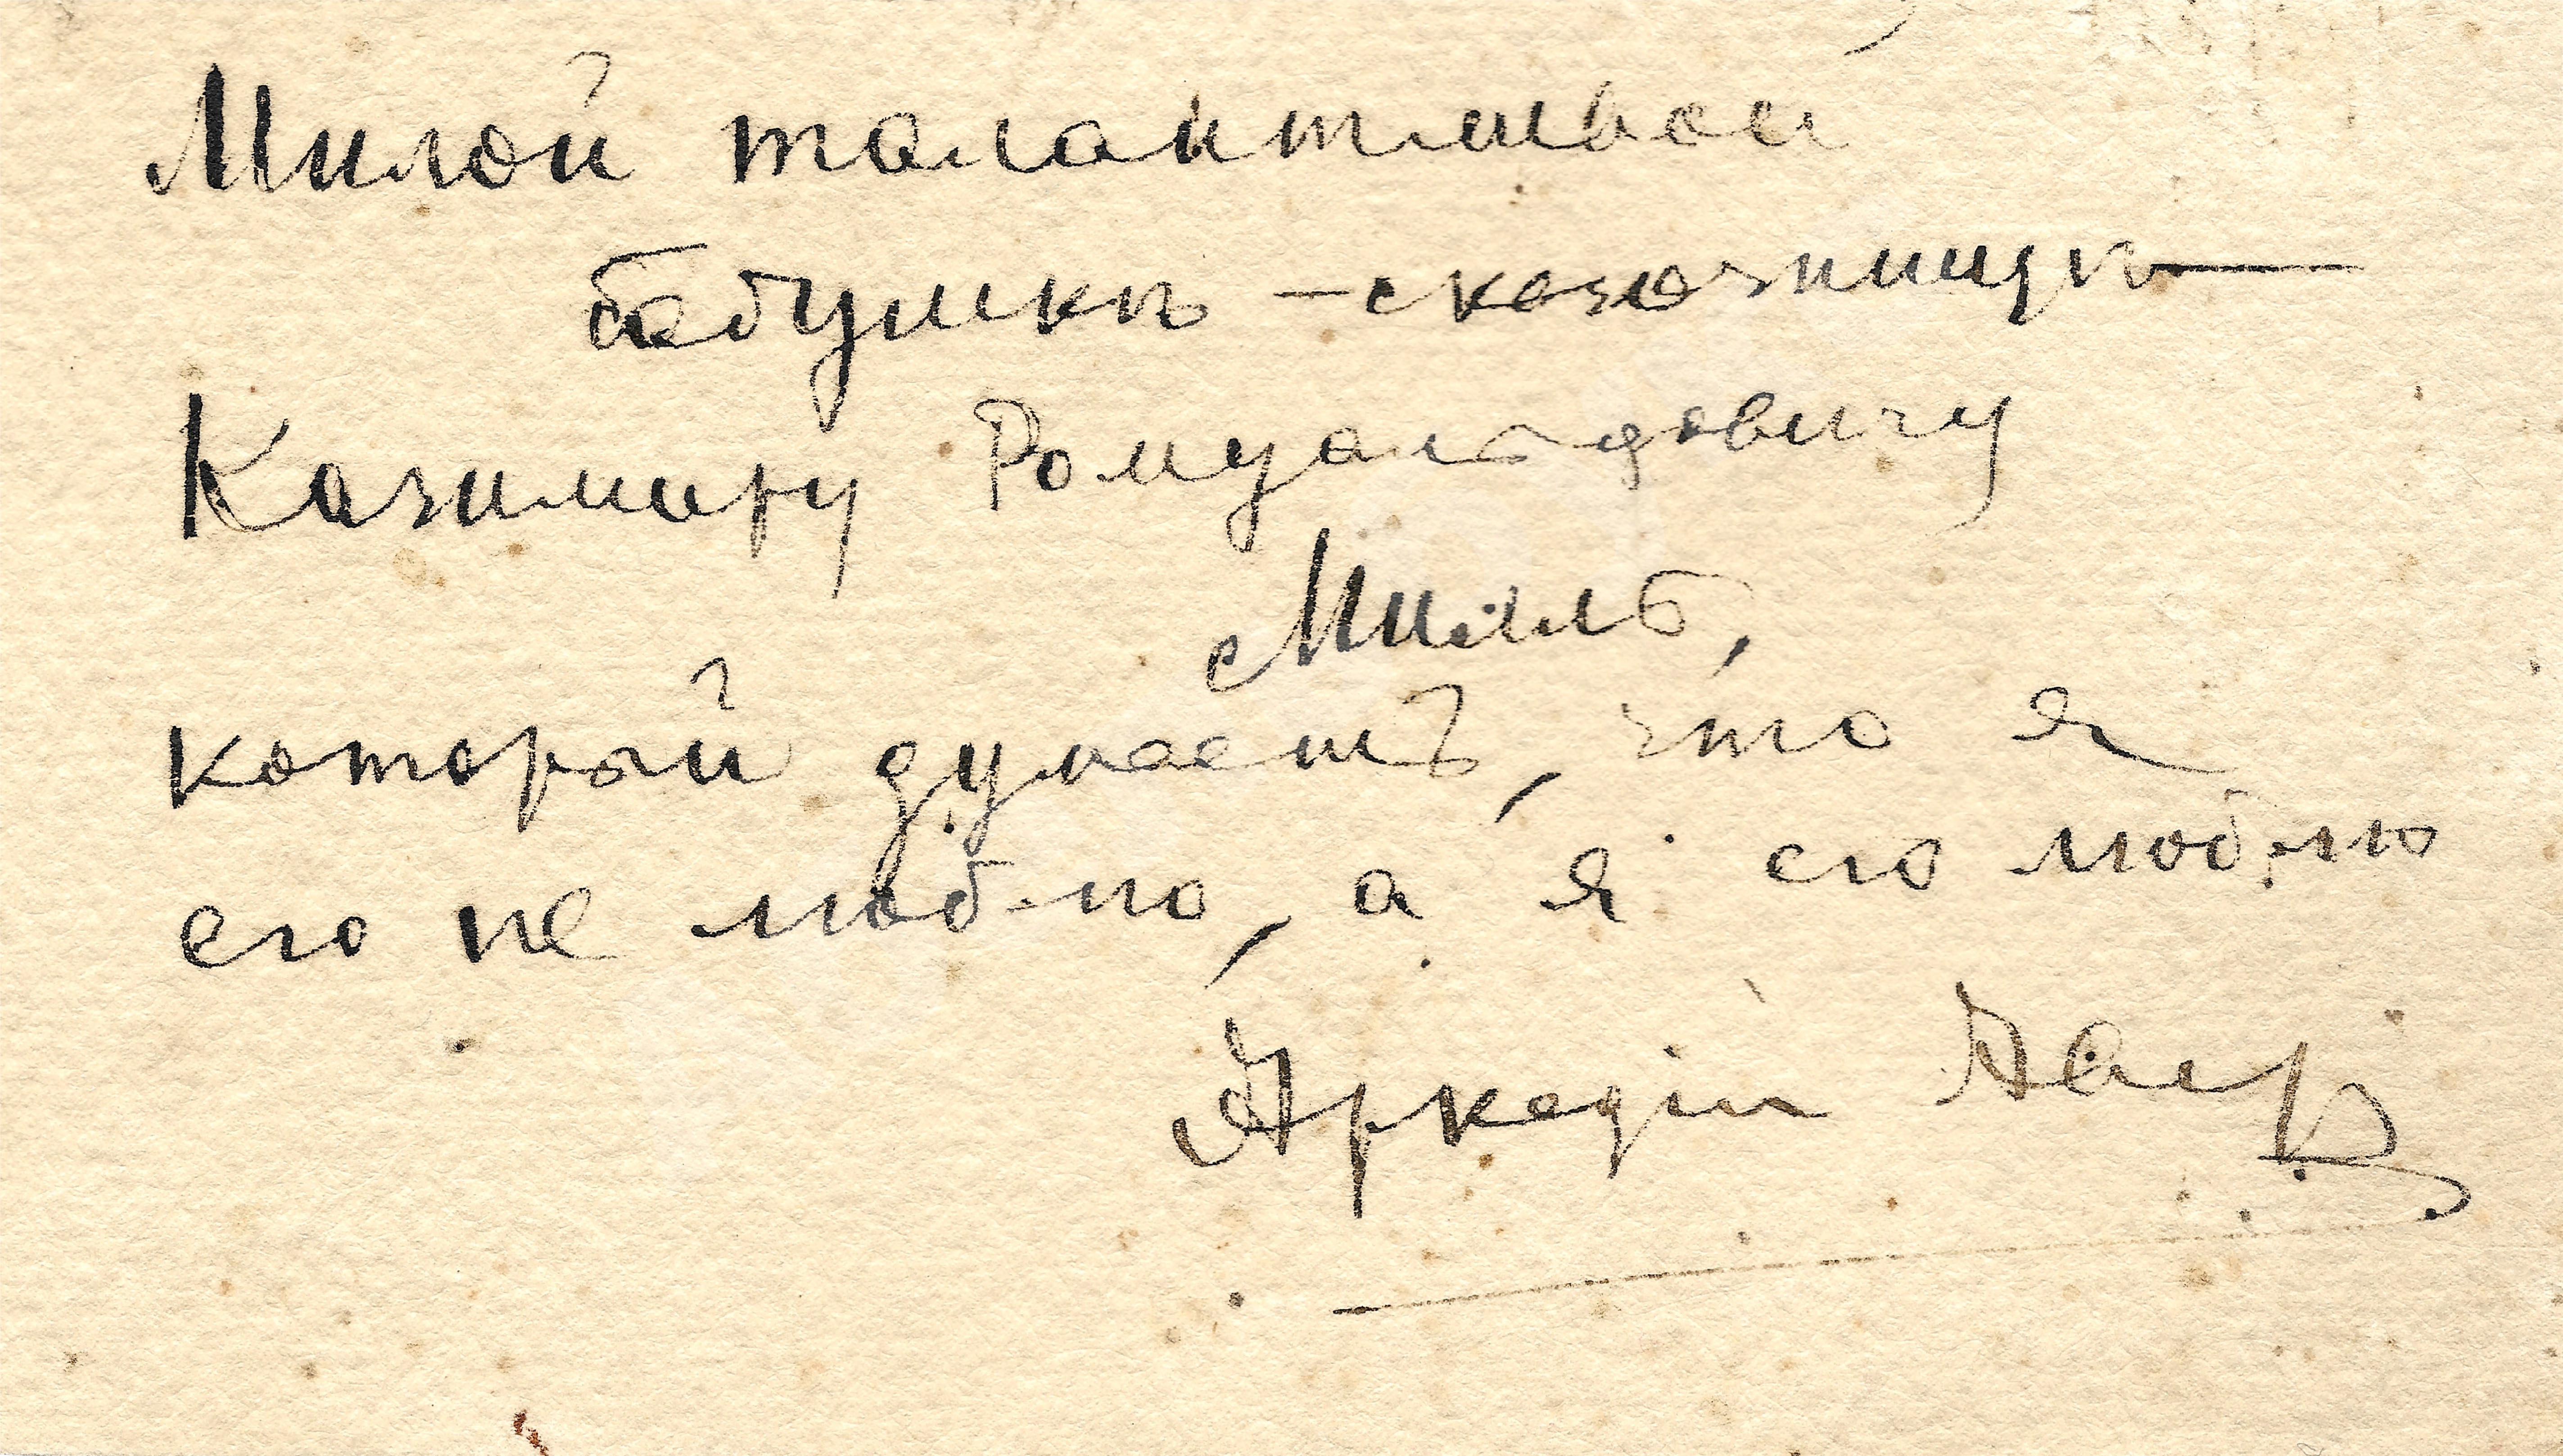 Милой талантливой
бабушкѣ - сказочницѣ —
Казимиру Ромуальдовичу
который думаетъ, что я
его не люблю, а я его люблю
Аркадій Авер